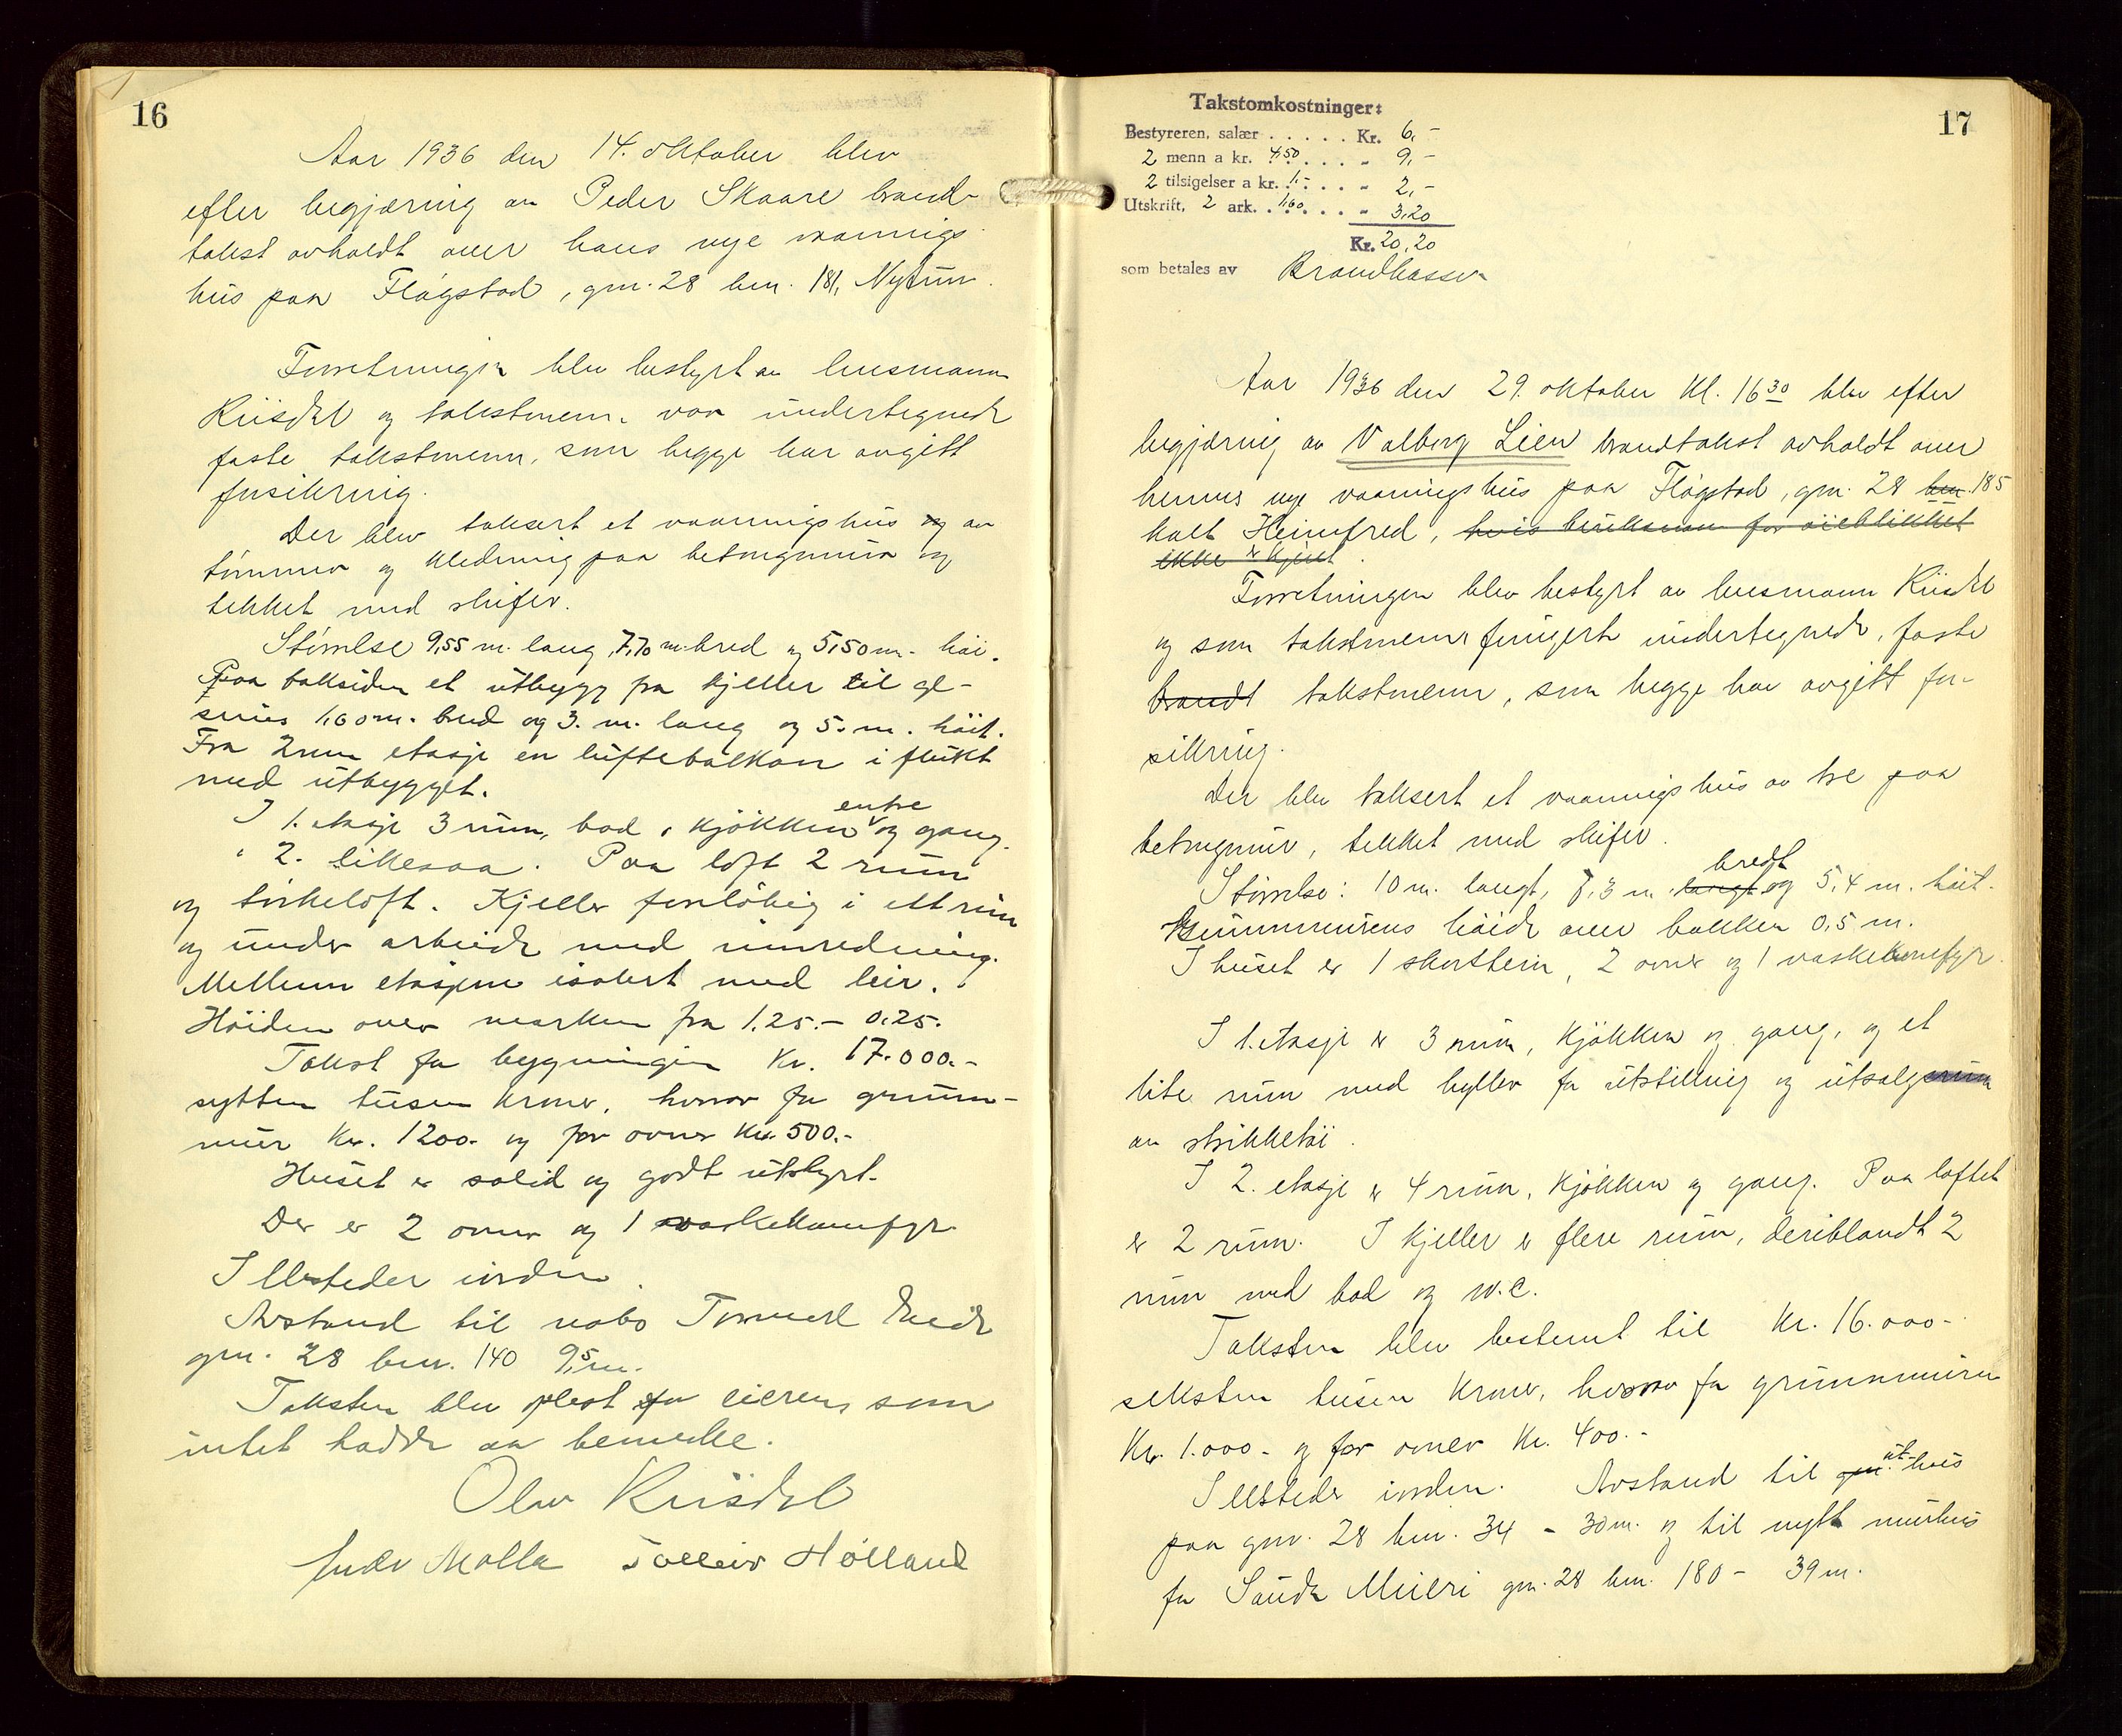 16
Aar 1936 den 14. oktober blev
efter begjæring av Peder Skaare brand-
takst avholdt over hans nye vaanings-
hus paa Fløgstad, gnr. 28 bnr. 181, Nytun.
Forretningen blev bestyrt av lensmann
Riisdal og takstmenn var undertegnede
faste takstmenn, som begge har avgitt
forsikring.
Der blev taksert et vaaningshus og av
tømmer og kledning paa betongmur og
tekket med skifer.
Størrelse 9,55 m. lang, 7,70 m. bred og 5,50 m. høi.
Paa baksiden et utbygg fra kjeller til ge-
sims 1,60 m. bred og 3. m. lang og 5. m. høit.
Fra 2nen etasje en luftebalkon i flukt
med utbygget.
I 1. etasje 3 rum, bad, kjøkken entre og gang.
" 2. likesaa. Paa loft 2 rum
og tørkeloft. Kjeller foreløbig i ett rum
og under arbeide med innredning.
Mellem etasjene isolert med leir.
Høiden over marken fra 1.25.- 0.25.
Takst for bygningen Kr. 17.000.-
sytten tusen kroner, hvorav for grunn-
mur Kr. 1200.- og for ovner Kr. 500.-
Huset er solid og godt utstyrt.
Der er 2 ovner og 1 vaskekomfyr
Ildsteder i orden.
Avstand til nabo Tormod Eide
gnr. 28 bnr. 140 9,5 m.
Taksten blev oplest for eieren, som
intet hadde aa bemerke.
Olav Riisdal
Endr Molla Tolleiv Hølland
17
Takstomkostninger:
Bestyreren, salær . . . . . Kr. 6,-
2 menn a kr. 4,50 . . . " 9,-
2 tilsigelser a kr. 1,- . . . " 2,-
Utskrift, 2 ark. . 1,60 . . . " 3,20
Kr. 20,20
som betales av Brandkassen
Aar 1936 den 29. oktober kl. 16 30 blev efter
begjæring av Valborg Lien brandtakst avholdt over
hennes nye vaaningshus paa Fløgstad, gnr. 28 bnr. 185
kalt Heimfred, hvis bruksnam for øieblikket
ikke er kjent.
Forretningen blev bestyrt av lensmann Riisdal
og som takstmenn fungerte undertegnede, faste
brandt takstmenn, som begge har avgitt for-
sikring.
Der blev taksert et vaaningshus av tre paa
betongmur, tekket med skifer.
Størrelse: 10 m. langt, 8,3 m. langt bredt og 5,4 m. høit.
Grunnmurens høide over bakken 0,5 m.
I huset er 1 skorstein, 2 ovner og 1 vaskekomfyr.
I 1. etasje er 3 rum, kjøkken og gang, og et
lite rum med hyller for utstilling og utsalgsrum
av strikketøi.
I 2. etasje er 4 rum, kjøkken og gang. Paa loftet
er 2 rum. I kjeller er flere rum, deriblandt 2
rum med bad og w.c.
Taksten blev bestemt til Kr. 16.000-
seksten tusen kroner, hvorav for grunnmuren
Kr. 1.000- og for ovner Kr. 400.-
Ildsteder i orden. Avstand til gnr. ut-hus
paa gnr. 28 bnr. 34 - 30 m. og til nytt murhus
for Sauda Meieri gnr. 28 bnr. 180 - 39 m.